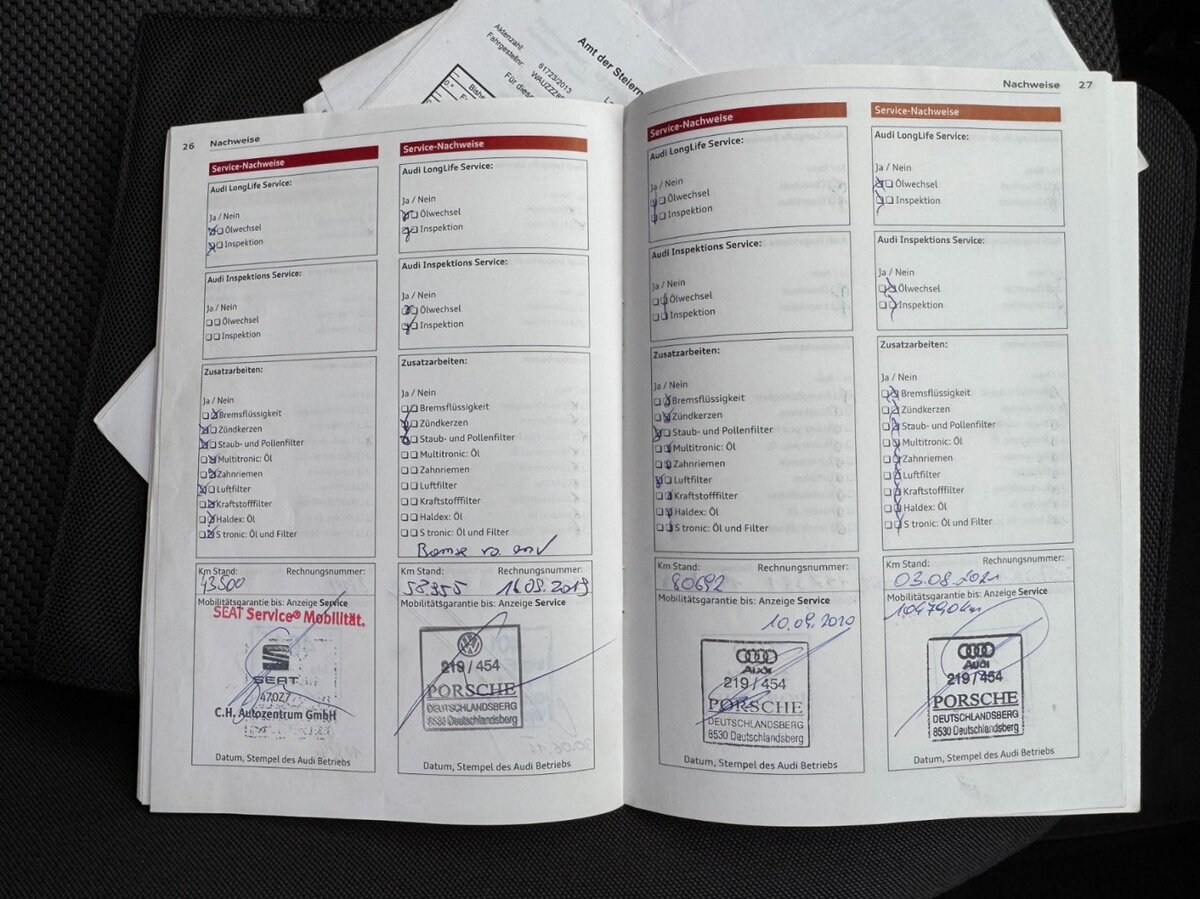 Aktenzahl
Fahrgestellnr
61723/2013
Amt der Steier
Für diese
26 Nachweise
Service-Nachweise
Audi LongLife Service:
Ja / Nein
Ölwechsel
Inspektion
Audi Inspektions Service:
Ja / Nein
Ölwechsel
Inspektion
Zusatzarbeiten:
Ja / Nein
Bremsflüssigkeit
Zündkerzen
Staub- und Pollenfilter
Multitronic: Öl
Zahnriemen
Luftfilter
Kraftstofffilter
Haldex: Öl
S tronic: Öl und Filter
Km Stand: Rechnungsnummer:
43500
Mobilitätsgarantie bis: Anzeige Service
SEAT Service® Mobilität.
SEAT
47027
C.H. Autozentrum GmbH
Datum, Stempel des Audi Betriebs
Service-Nachweise
Audi LongLife Service:
Ja / Nein
Ölwechsel
Inspektion
Audi Inspektions Service:
Ja / Nein
Ölwechsel
Inspektion
Zusatzarbeiten:
Ja / Nein
Bremsflüssigkeit
Zündkerzen
Staub- und Pollenfilter
Multitronic: Öl
Zahnriemen
Luftfilter
Kraftstofffilter
Haldex: Öl
S tronic: Öl und Filter
Km Stand: Rechnungsnummer:
58955 16.09.2019
Mobilitätsgarantie bis: Anzeige Service
219 / 454
PORSCHE
DEUTSCHLANDSBERG
8530 Deutschlandsberg
Datum, Stempel des Audi Betriebs
Nachweise 27
Service-Nachweise
Audi LongLife Service:
Ja / Nein
Ölwechsel
Inspektion
Audi Inspektions Service:
Ja / Nein
Ölwechsel
Inspektion
Zusatzarbeiten:
Ja / Nein
Bremsflüssigkeit
Zündkerzen
Staub- und Pollenfilter
Multitronic: Öl
Zahnriemen
Luftfilter
Kraftstofffilter
Haldex: Öl
S tronic: Öl und Filter
Km Stand: Rechnungsnummer:
80692
Mobilitätsgarantie bis: Anzeige Service
10.09.2020
Audi
219 / 454
PORSCHE
DEUTSCHLANDSBERG
8530 Deutschlandsberg
Datum, Stempel des Audi Betriebs
Service-Nachweise
Audi LongLife Service:
Ja / Nein
Ölwechsel
Inspektion
Audi Inspektions Service:
Ja / Nein
Ölwechsel
Inspektion
Zusatzarbeiten:
Ja / Nein
Bremsflüssigkeit
Zündkerzen
Staub- und Pollenfilter
Multitronic: Öl
Zahnriemen
Luftfilter
Kraftstofffilter
Haldex: Öl
S tronic: Öl und Filter
Km Stand: Rechnungsnummer:
03.08.2021
Mobilitätsgarantie bis: Anzeige Service
104790km
Audi
219 / 454
PORSCHE
DEUTSCHLANDSBERG
8530 Deutschlandsberg
Datum, Stempel des Audi Betriebs